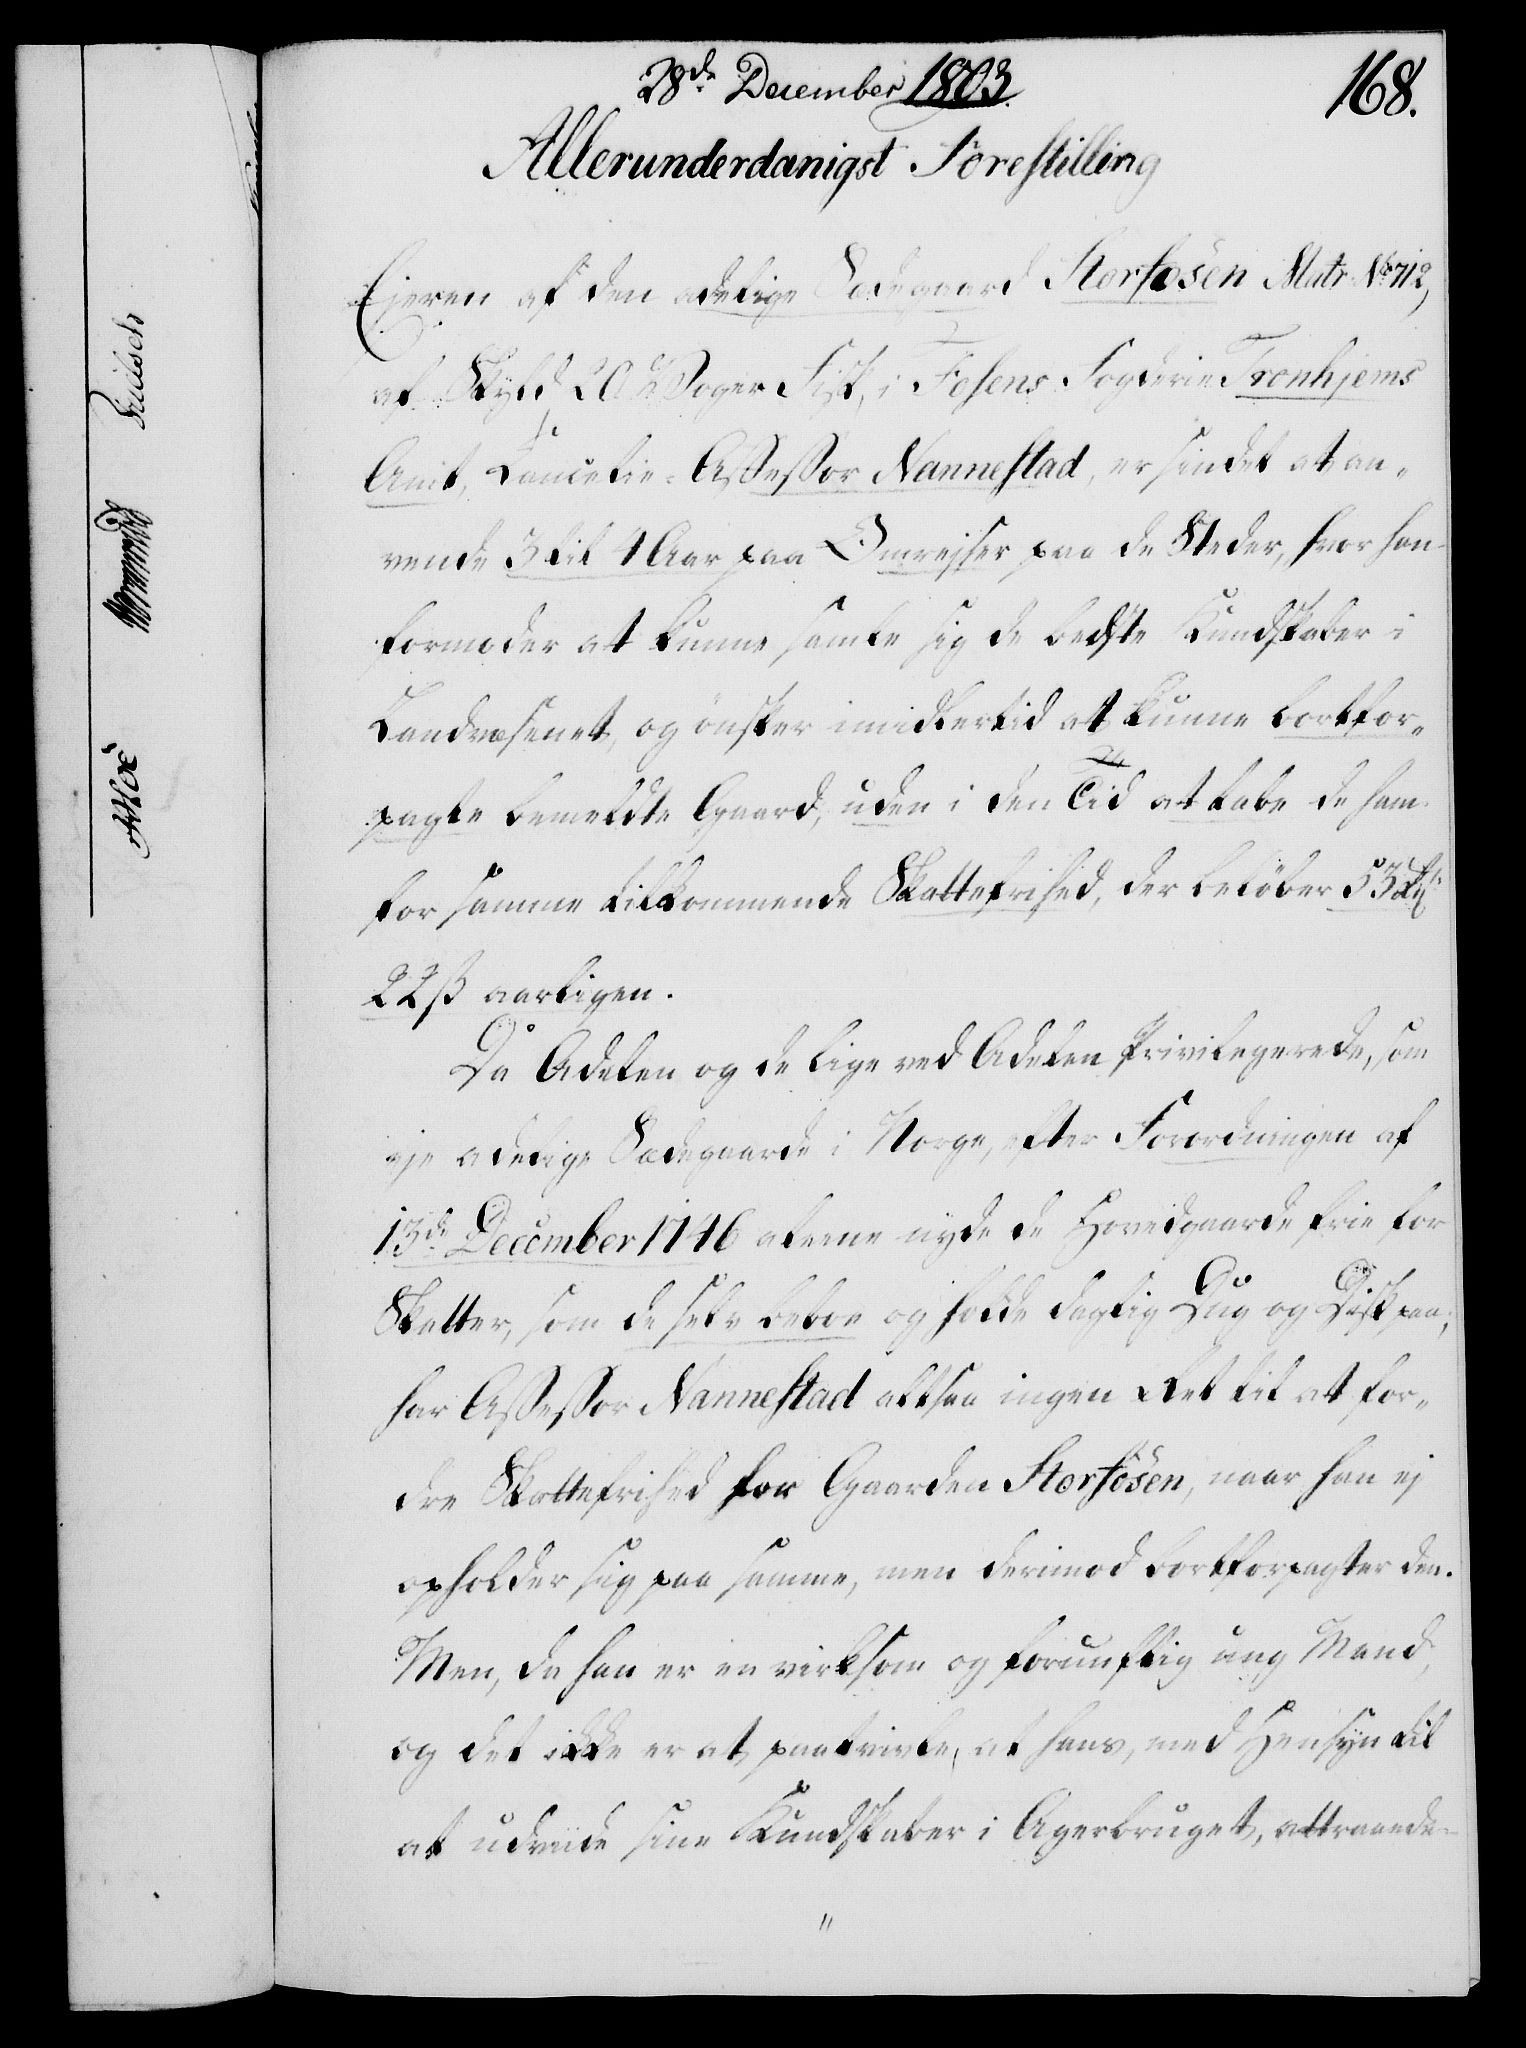 28de December 1803.
168.
Allerunderdanigst Forestilling
Ejeren af den adelige Sædegaard Storfosen Matr. No 712,
af Skyld 20 Voger Fisk, i Fosens Fogderie Tronhjems
Amt, Cancelie-Assessor Nannestad, er sindet at an-
vende 3 til 4 Aar paa Omrejser paa de Steder, hvor han
formoder at kunne samle sig de bedste Kundskaber i
Landvæsenet, og ønsker imidlertid at kunne bortfor-
pagte bemeldte Gaard, uden i den Tid at tabe de ham
for samme tilkommende Skattefrihed, der beløber 53 Rdlr
22 ß aarligen.
Da Adelen og de lige ved Adelen Privilegerede, som
eje adelige Sædegaarde i Norge, efter Forordningen af
13de December 1746 alene nyde de Hovedgaarde frie for
Skatter, som de selv beboe og holde daglig Dug og Disk paa,
har Assessor Nannestad altsaa ingen Ret til at for-
dre Skattefrihed for Gaarden Storfosen, naar han ej
opholder sig paa samme, men derimod bortforpagter den.
Men, da han er en virksom og fornuftig ung Mand,
og det ikke er at paatvivle, at hans, med Hensyn til
at udvide sine Kundskaber i Agerbruget, attraaede